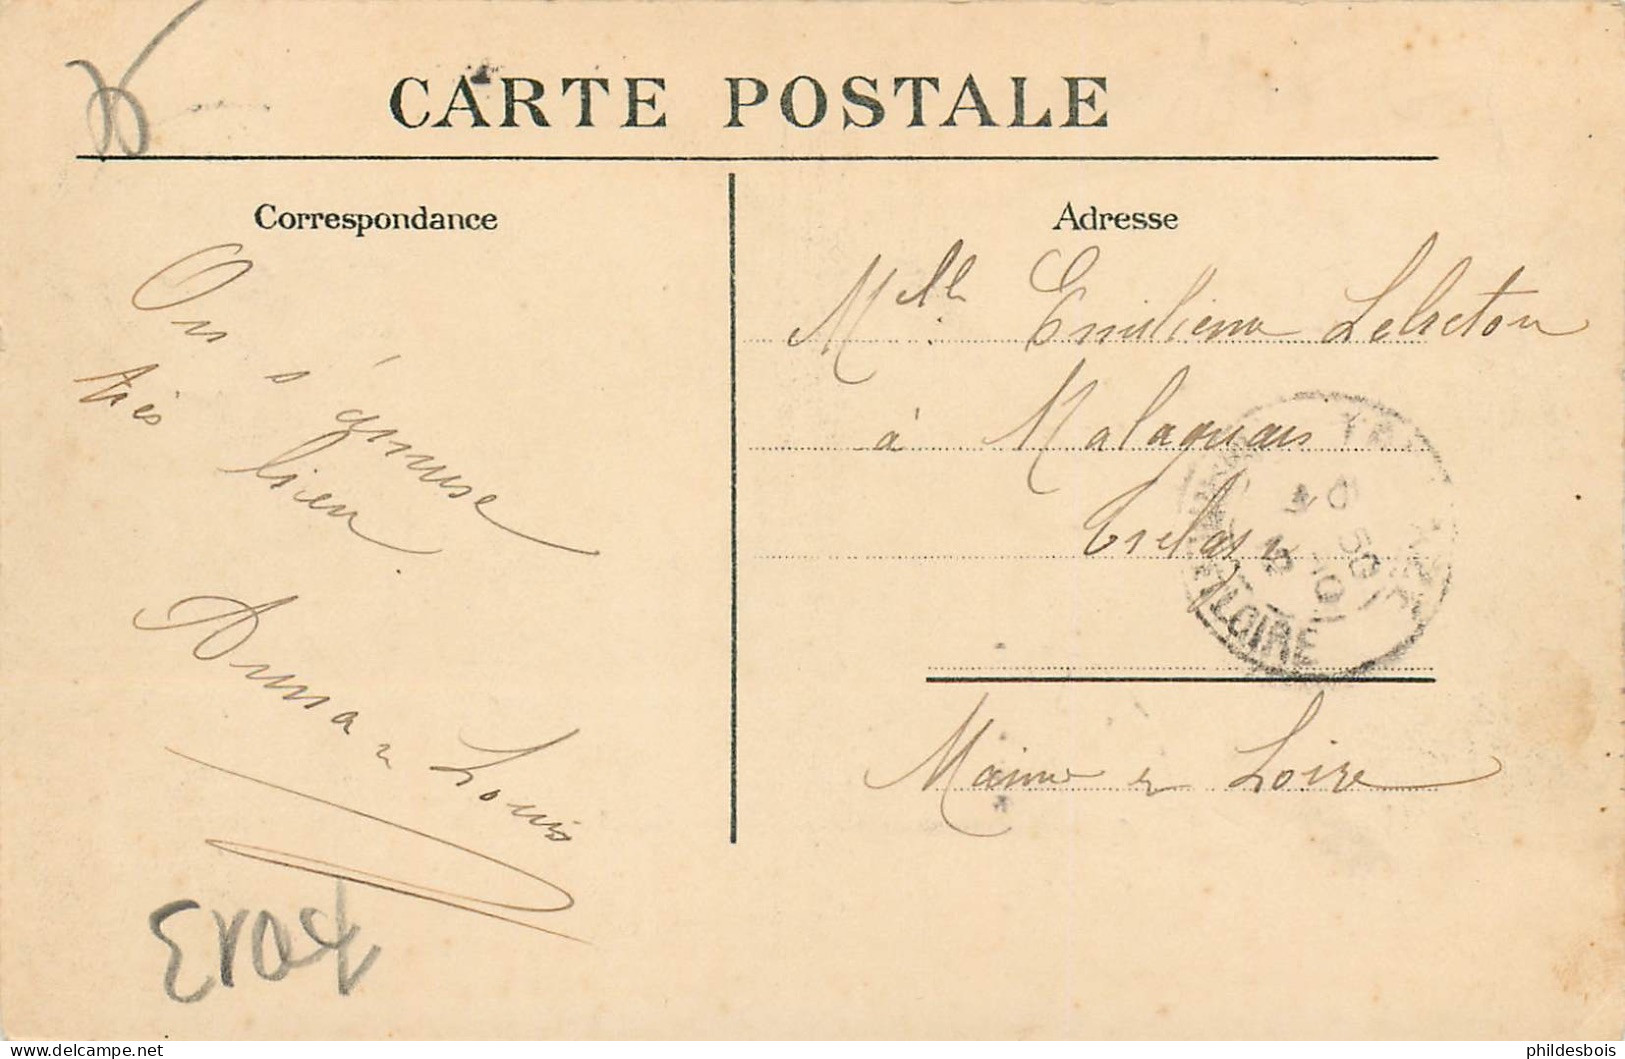 CARTE POSTALE
Correspondance
On s'amuse
très bien
Anna & Louis
Adresse
Melle Emilienne Lebreton
à Malaquais
Trélazé
Maine & Loire
LOIRE
phildesbois